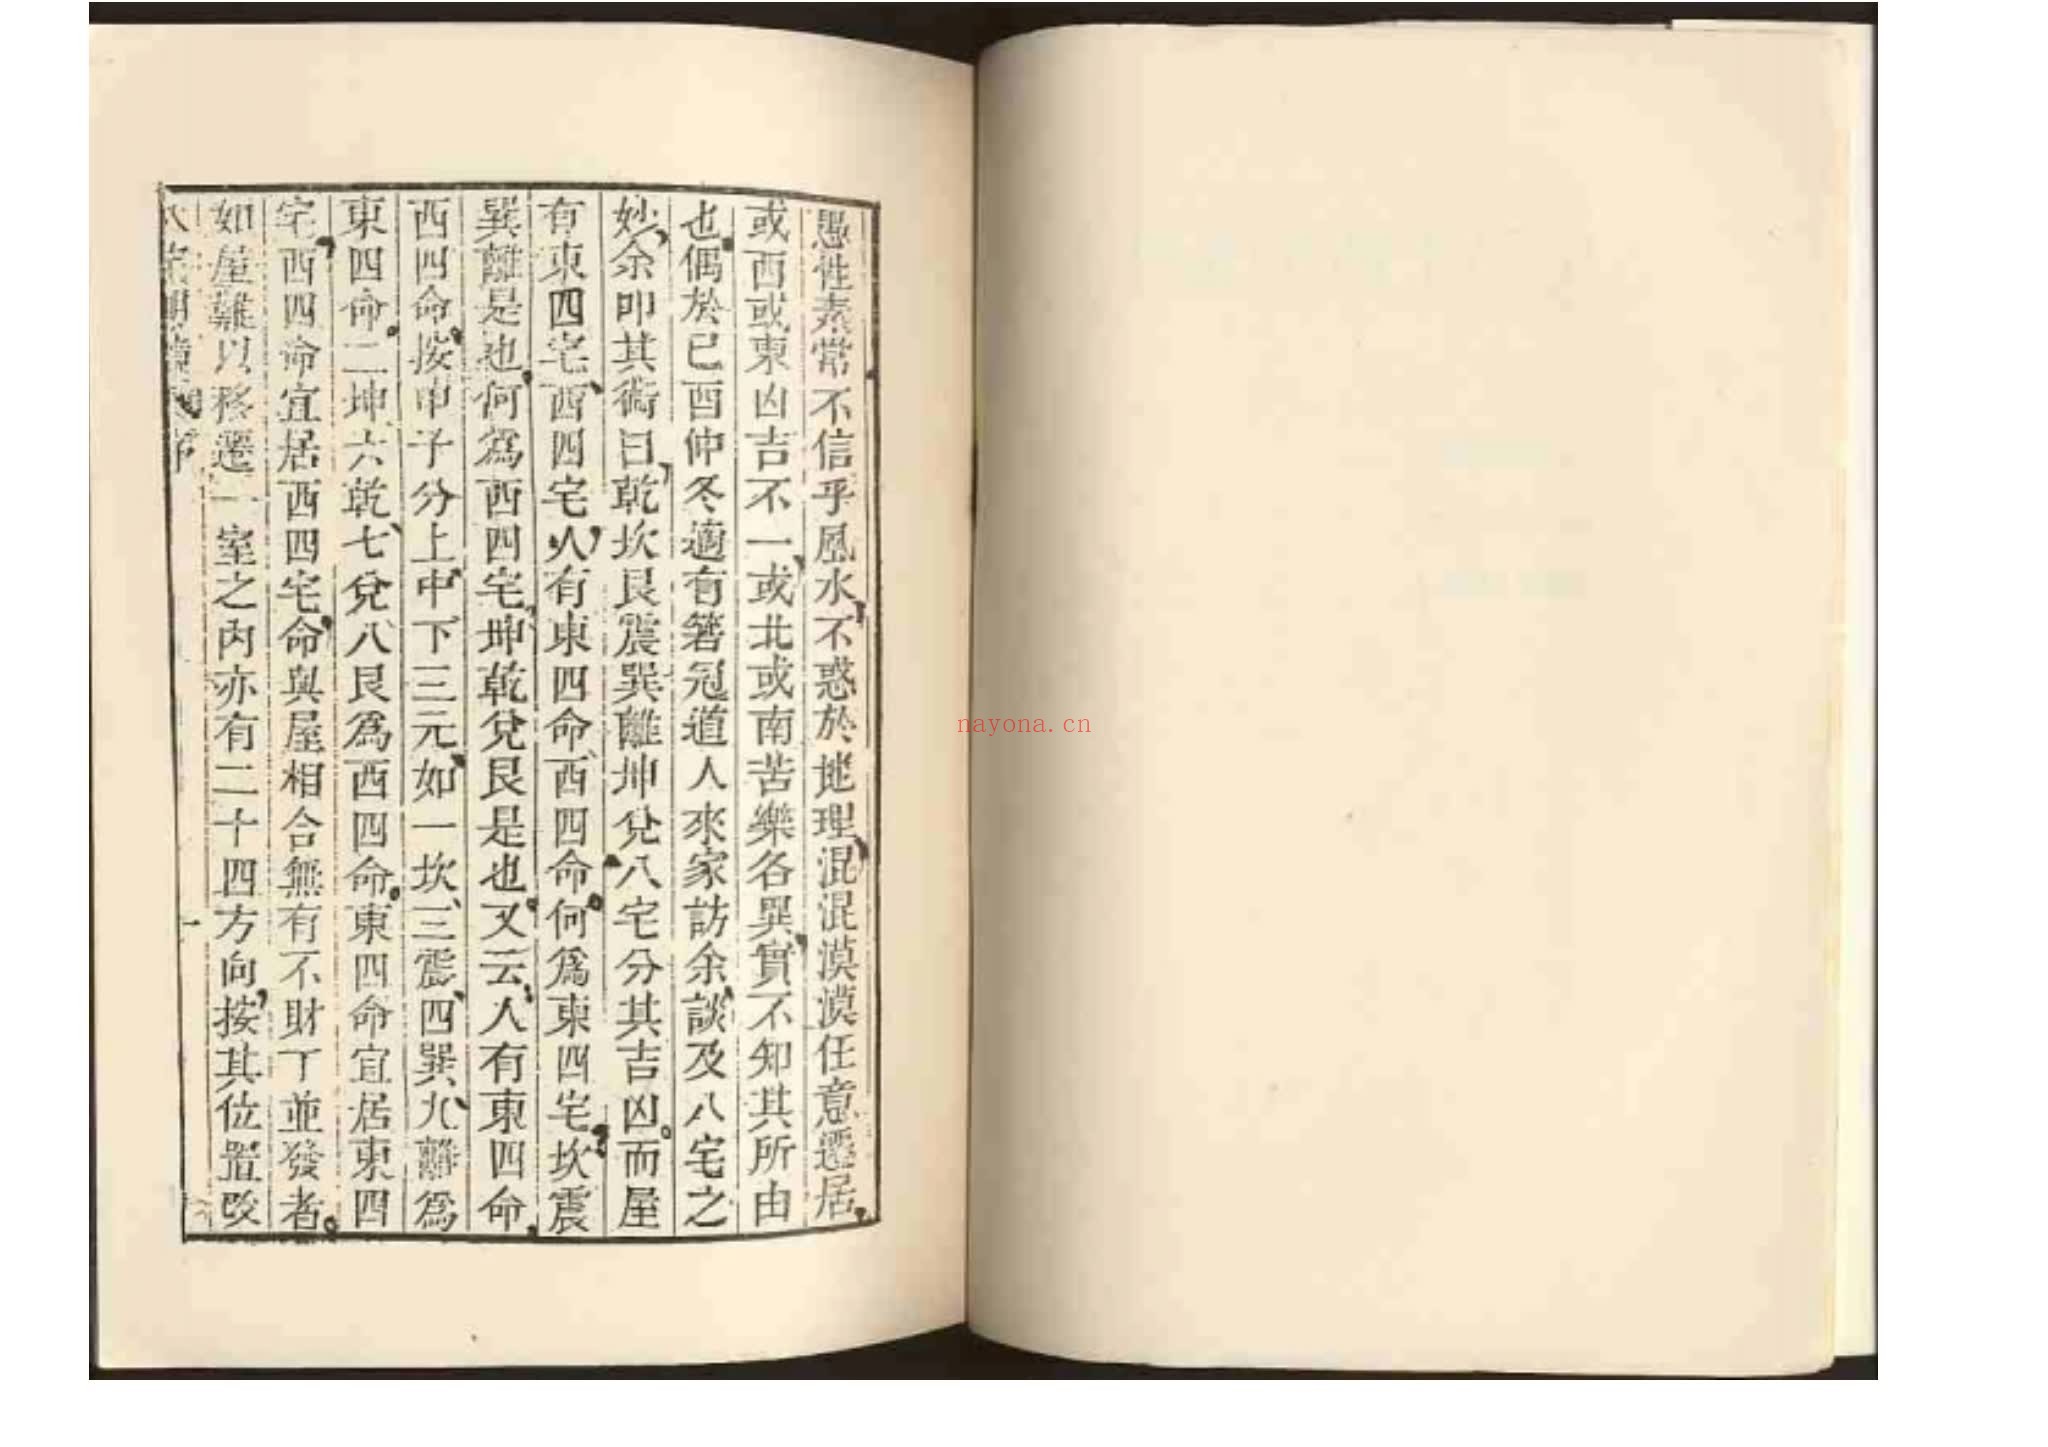 愚性素常不信乎風水不惑於地理混混漠漠任意遷居
或西或東凶吉不一或北或南苦樂各異實不知其所由
也偶於己酉仲冬適有簪冠道人來家訪余談及八宅之
妙余叩其術曰乾坎艮震巽離坤兌八宅分其吉凶而屋
有東四宅西四宅人有東四命西四命何爲東四宅坎震
巽離是也何爲西四宅坤乾兌艮是也又云人有東四命
西四命按甲子分上中下三元如一坎三震四巽九離爲
東四命二坤六乾七兌八艮爲西四命東四命宜居東四
宅西四命宜居西四宅命與屋相合無有不財丁並發者
如屋難以移遷一室之內亦有二十四方向按其位置改
八宅明鏡 序
一
nayona.cn